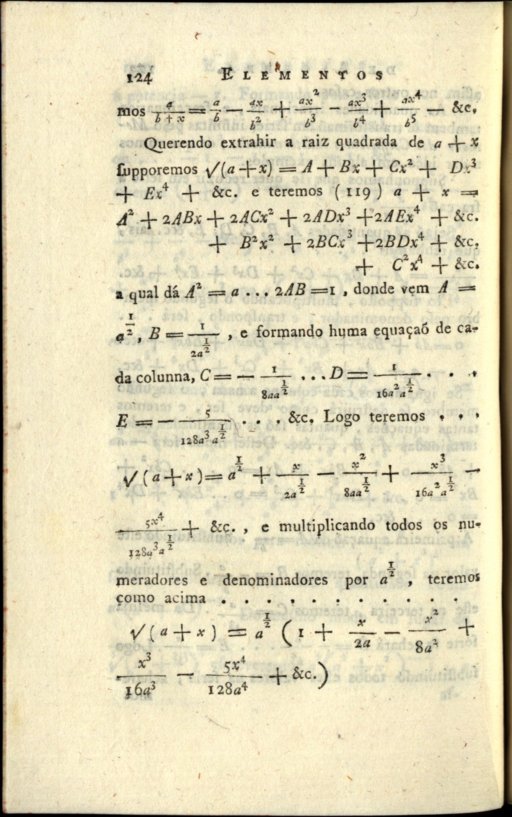 124 ELEMENTOS
mos a/(b + x) = a/b − ax/b² + ax²/b³ − ax³/b⁴ + ax⁴/b⁵ − &c.
Querendo extrahir a raiz quadrada de a + x
ſupporemos √(a+x) = A + Bx + Cx² + Dx³
+ Ex⁴ + &c. e teremos (119) a + x =
A² + 2ABx + 2ACx² + 2ADx³ + 2AEx⁴ + &c.
+ B²x² + 2BCx³ + 2BDx⁴ + &c.
+ C²x⁴ + &c.
a qual dá A² = a ... 2AB = 1, donde vem A =
a^½, B = 1/(2a^½), e formando huma equaçaõ de ca-
da colunna, C = − 1/(8aa^½) ... D = 1/(16a²a^½) . . .
E = − 5/(128a³a^½) . . . . &c. Logo teremos . . .
√(a+x) = a^½ + x/(2a^½) − x²/(8aa^½) + x³/(16a²a^½) −
5x⁴/(128a³a^½) + &c., e multiplicando todos os nu-
meradores e denominadores por a^½, teremos
como acima . . . . . . . . . .
√(a + x) = a^½ (1 + x/2a − x²/8a² +
x³/16a³ − 5x⁴/128a⁴ + &c.)